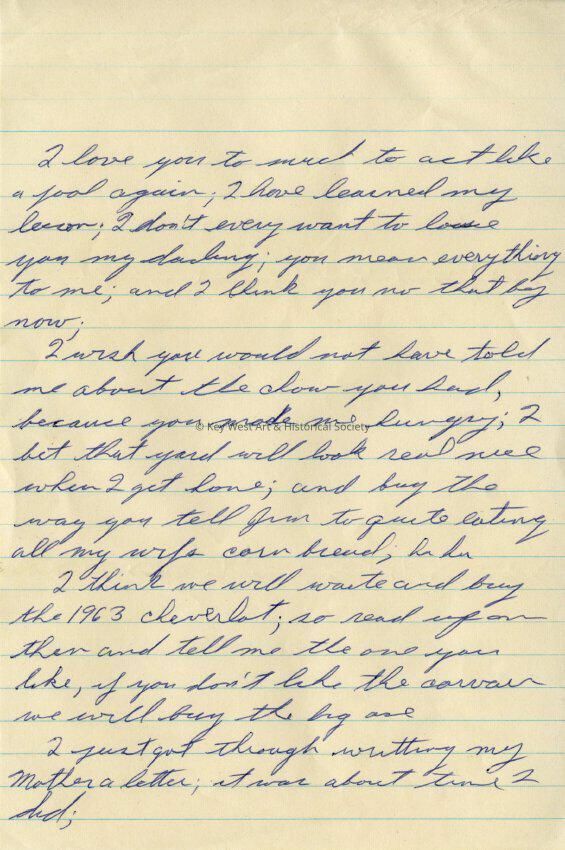 I love you to much to act like
a fool again; I have learned my
lesson; I don't every want to loose
you my darling; you mean everything
to me; and I think you no that by
now;
I wish you would not have told
me about the chow you had,
because you made me hungry; I
© Key West Art & Historical Society
bet that yard will look real nice
when I get home; and buy the
way you tell Jim to quite eating
all my wifs corn bread; ha ha
I think we will waite and buy
the 1963 cheverlot; so read up on
them and tell me the one you
like, if you don't like the corvair
we will buy the big one
I just got through writting my
Mother a letter; it was about time I
did;